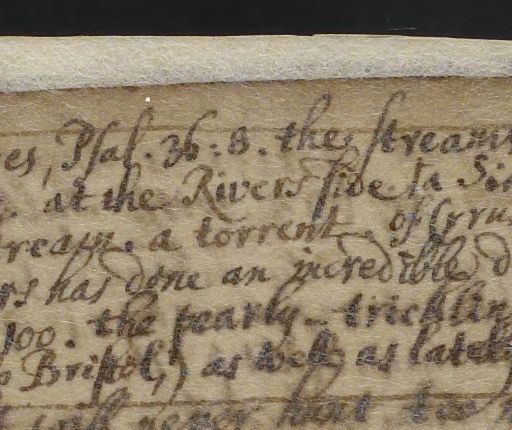 es, Psal. 36:8. the streams
at the Rivers side
ream. a torrent. of
rs has done an incredible d
00. the pearly-tricklin
Bristol,) as well as lately
never hurt